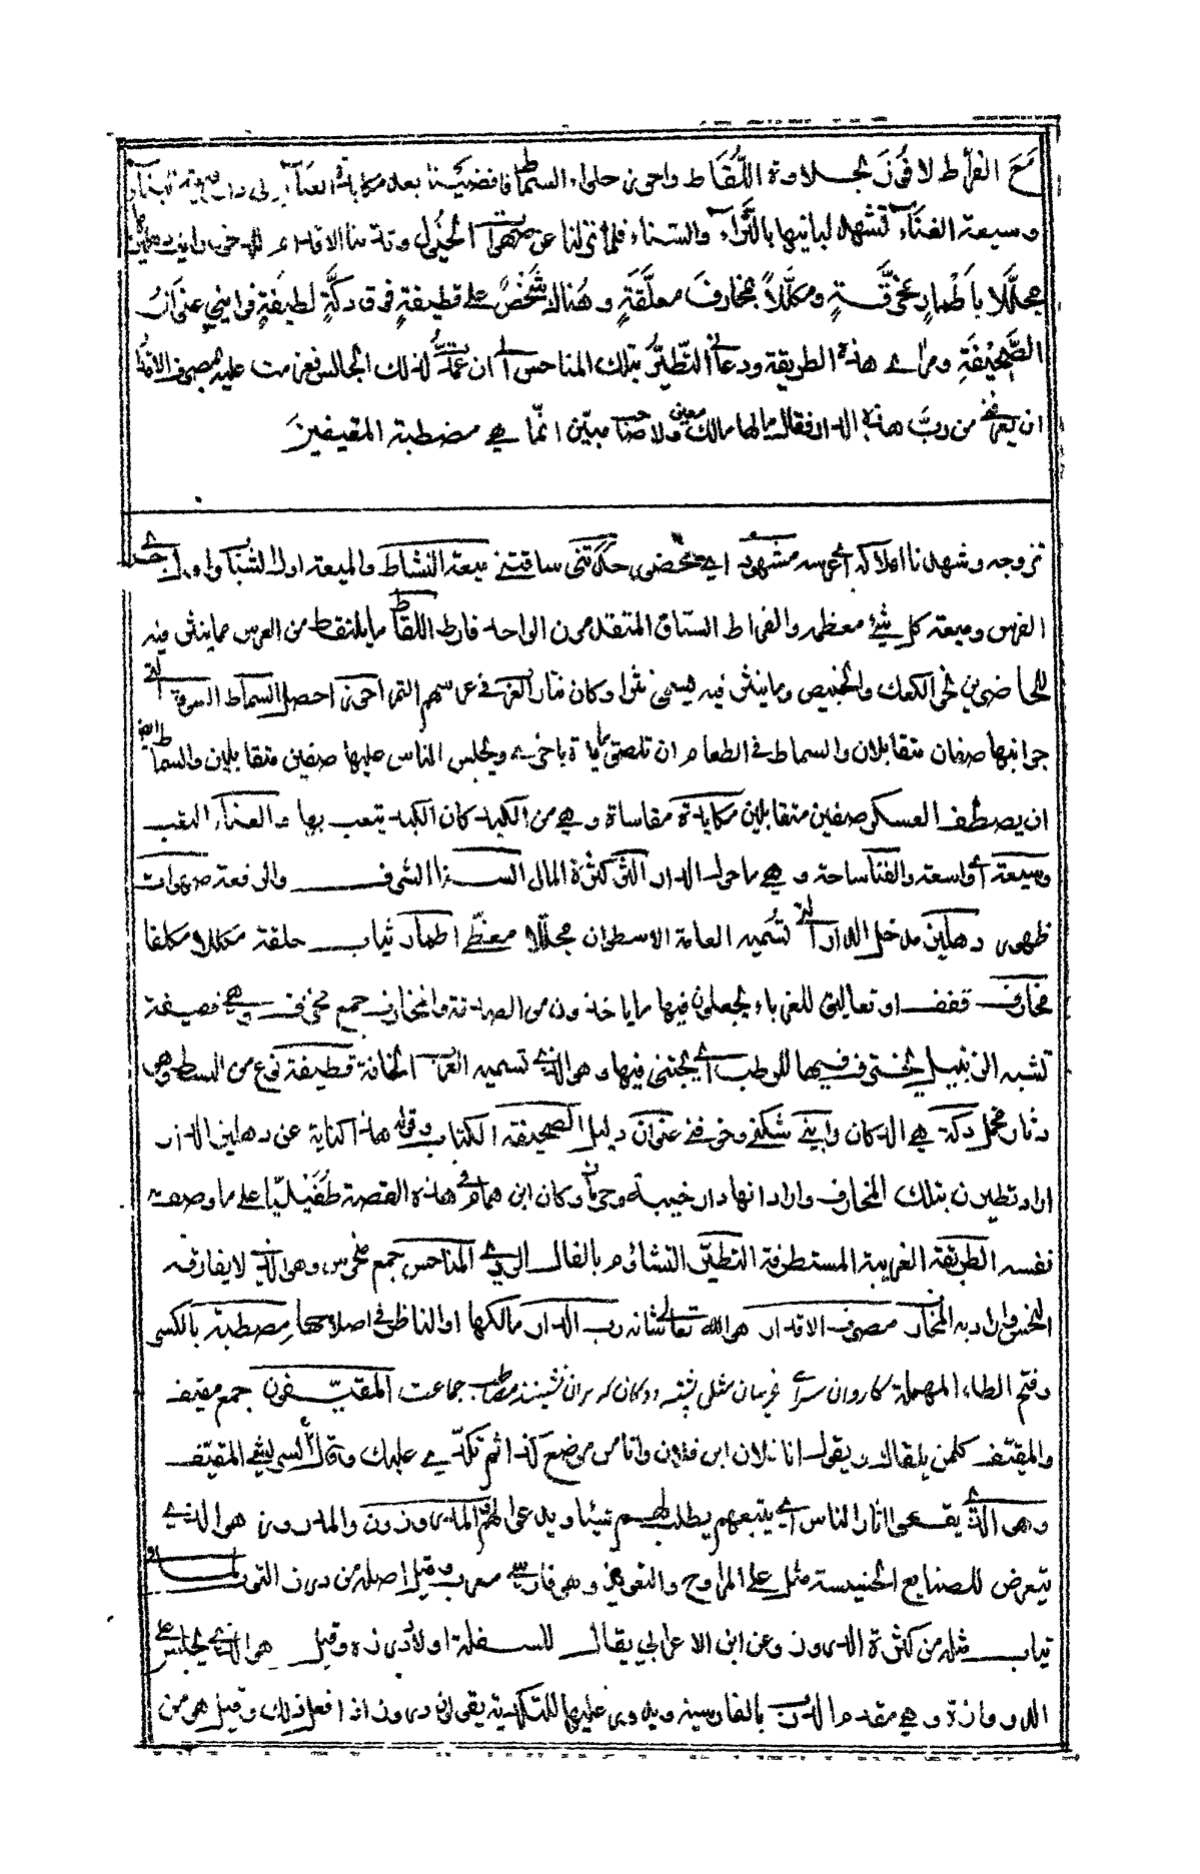 مع الفراط لافوز بحلاوة اللقاط واحوز حلواء السماط فافضينا بعد مكابدة العناء الى دار رفيعة البناء
وسيعة الفناء تشهد لبانيها بالثراء والسناء فلما نزلنا عن صهوات الخيول وقدمنا الاقدام للدخول رايت دهليزها
مجللا باطمار مخرقة ومكللا بمخارف معلقة وهناك شخص على قطيفة فوق دكة لطيفة فرابني عنوان
الصحيفة ومرأى هذه الطريقة ودعاني التطير بتلك المناحس الى ان عمدت لذلك الجالس فعزمت عليه بمصرف الاقدار
ان يعرفني من رب هذه الدار فقال ليس لها مالك معين ولا صاحب مبين انما هي مصطبة المقيفين
تزوجه وشهدنا املاكه اي عرسه مشهود اي محضر حدتني ساقتني ميعة النشاط والميعة اول الشباب واول جري
الفرس وميعة كل شيء معظمه والفراط السباق المتقدمون الواحد فارط اللقاط ما يلتقط من العرس مما ينثر فيه
للحاضرين نحو الكعك والخبيص وما ينثر فيه يسمى نثرا وكان نثار العرب في عرسهم التمر احوز احصل السماط السفرة التي
جوانبها صفان متقابلان والسماط في الطعام ان تلصق مائدة باخرى ويجلس الناس عليها صفين متقابلين والسماط ايضا
ان يصطف العسكر صفين متقابلين مكابدة مقاساة وهي من الكبد كان الكبد يتعب بها والعناء التعب
وسيعة اي واسعة والفناء ساحة وهي ما حول الدار الثراء كثرة المال السناء الشرف والرفعة صهوات
ظهور دهليز مدخل الدار التي تسميه العامة الاسطوان مجللا معظى اطمار ثياب خلقة مكللا مكلفا
مخارف قفف او تعاليق للغرباء يجعلون فيها ما ياخذون من الصدقة والمخارف جمع مخرف وهي قصيفة
تشبه الزنبيل يخترف فيها الرطب اي يجتنى فيها وهو الذي تسميه العرب الخانة قطيفة نوع من البسط وهي
دثار مخمل دكة هي الدكان رابني شككني وخوفني عنوان دليل الصحيفة الكتاب وقوله هذا كناية عن دهليز الدار
اراد تطيره بتلك المخارف واراد انها دار خيبة وحرمان وكان ابن همام في هذه القصة طفيليا على ما وصف
نفسه الطريقة الغريبة المستطرفة التطير التشاؤم بالفال الردي المناحس جمع منحوس وهو الذي لا يفارقه
النحس واراد به المخارف مصرف الاقدار هو الله تعالى شانه رب الدار مالكها او الناظر في اصلاحها مصطبة بالكسر
وفتح الطاء المهملة كاروان سراي غريبان مثل پشته ودكان كه بران نشينند مصاطب جماعت المقيفون جمع مقيف
والمقيف كل من يلقاك ويقول انا فلان ابن فلان وانا من موضع كذا ثم يكدي عليك وقال المقيف
وهو الذي يقفو اثار الناس اي يتبعهم يطلب لهم شيئا ويدعو الهم المدروزون والمدروز هو الذي
يتعرض للصنايع الخسيسة مثل على المراوح والتعويذ وهو فارسي معرب وقيل اصله من درز الثوب
ثياب مثله من كثرة الدروز وعن ابن الاعرابي يقال للسفلة اولاد درزة وقيل هو الذي يجلس على
الدروازة وهي مقدم الدرب بالفارسية ويدور عليها للتكدية يقولون دروز اذا فعل ذلك وقيل هو من